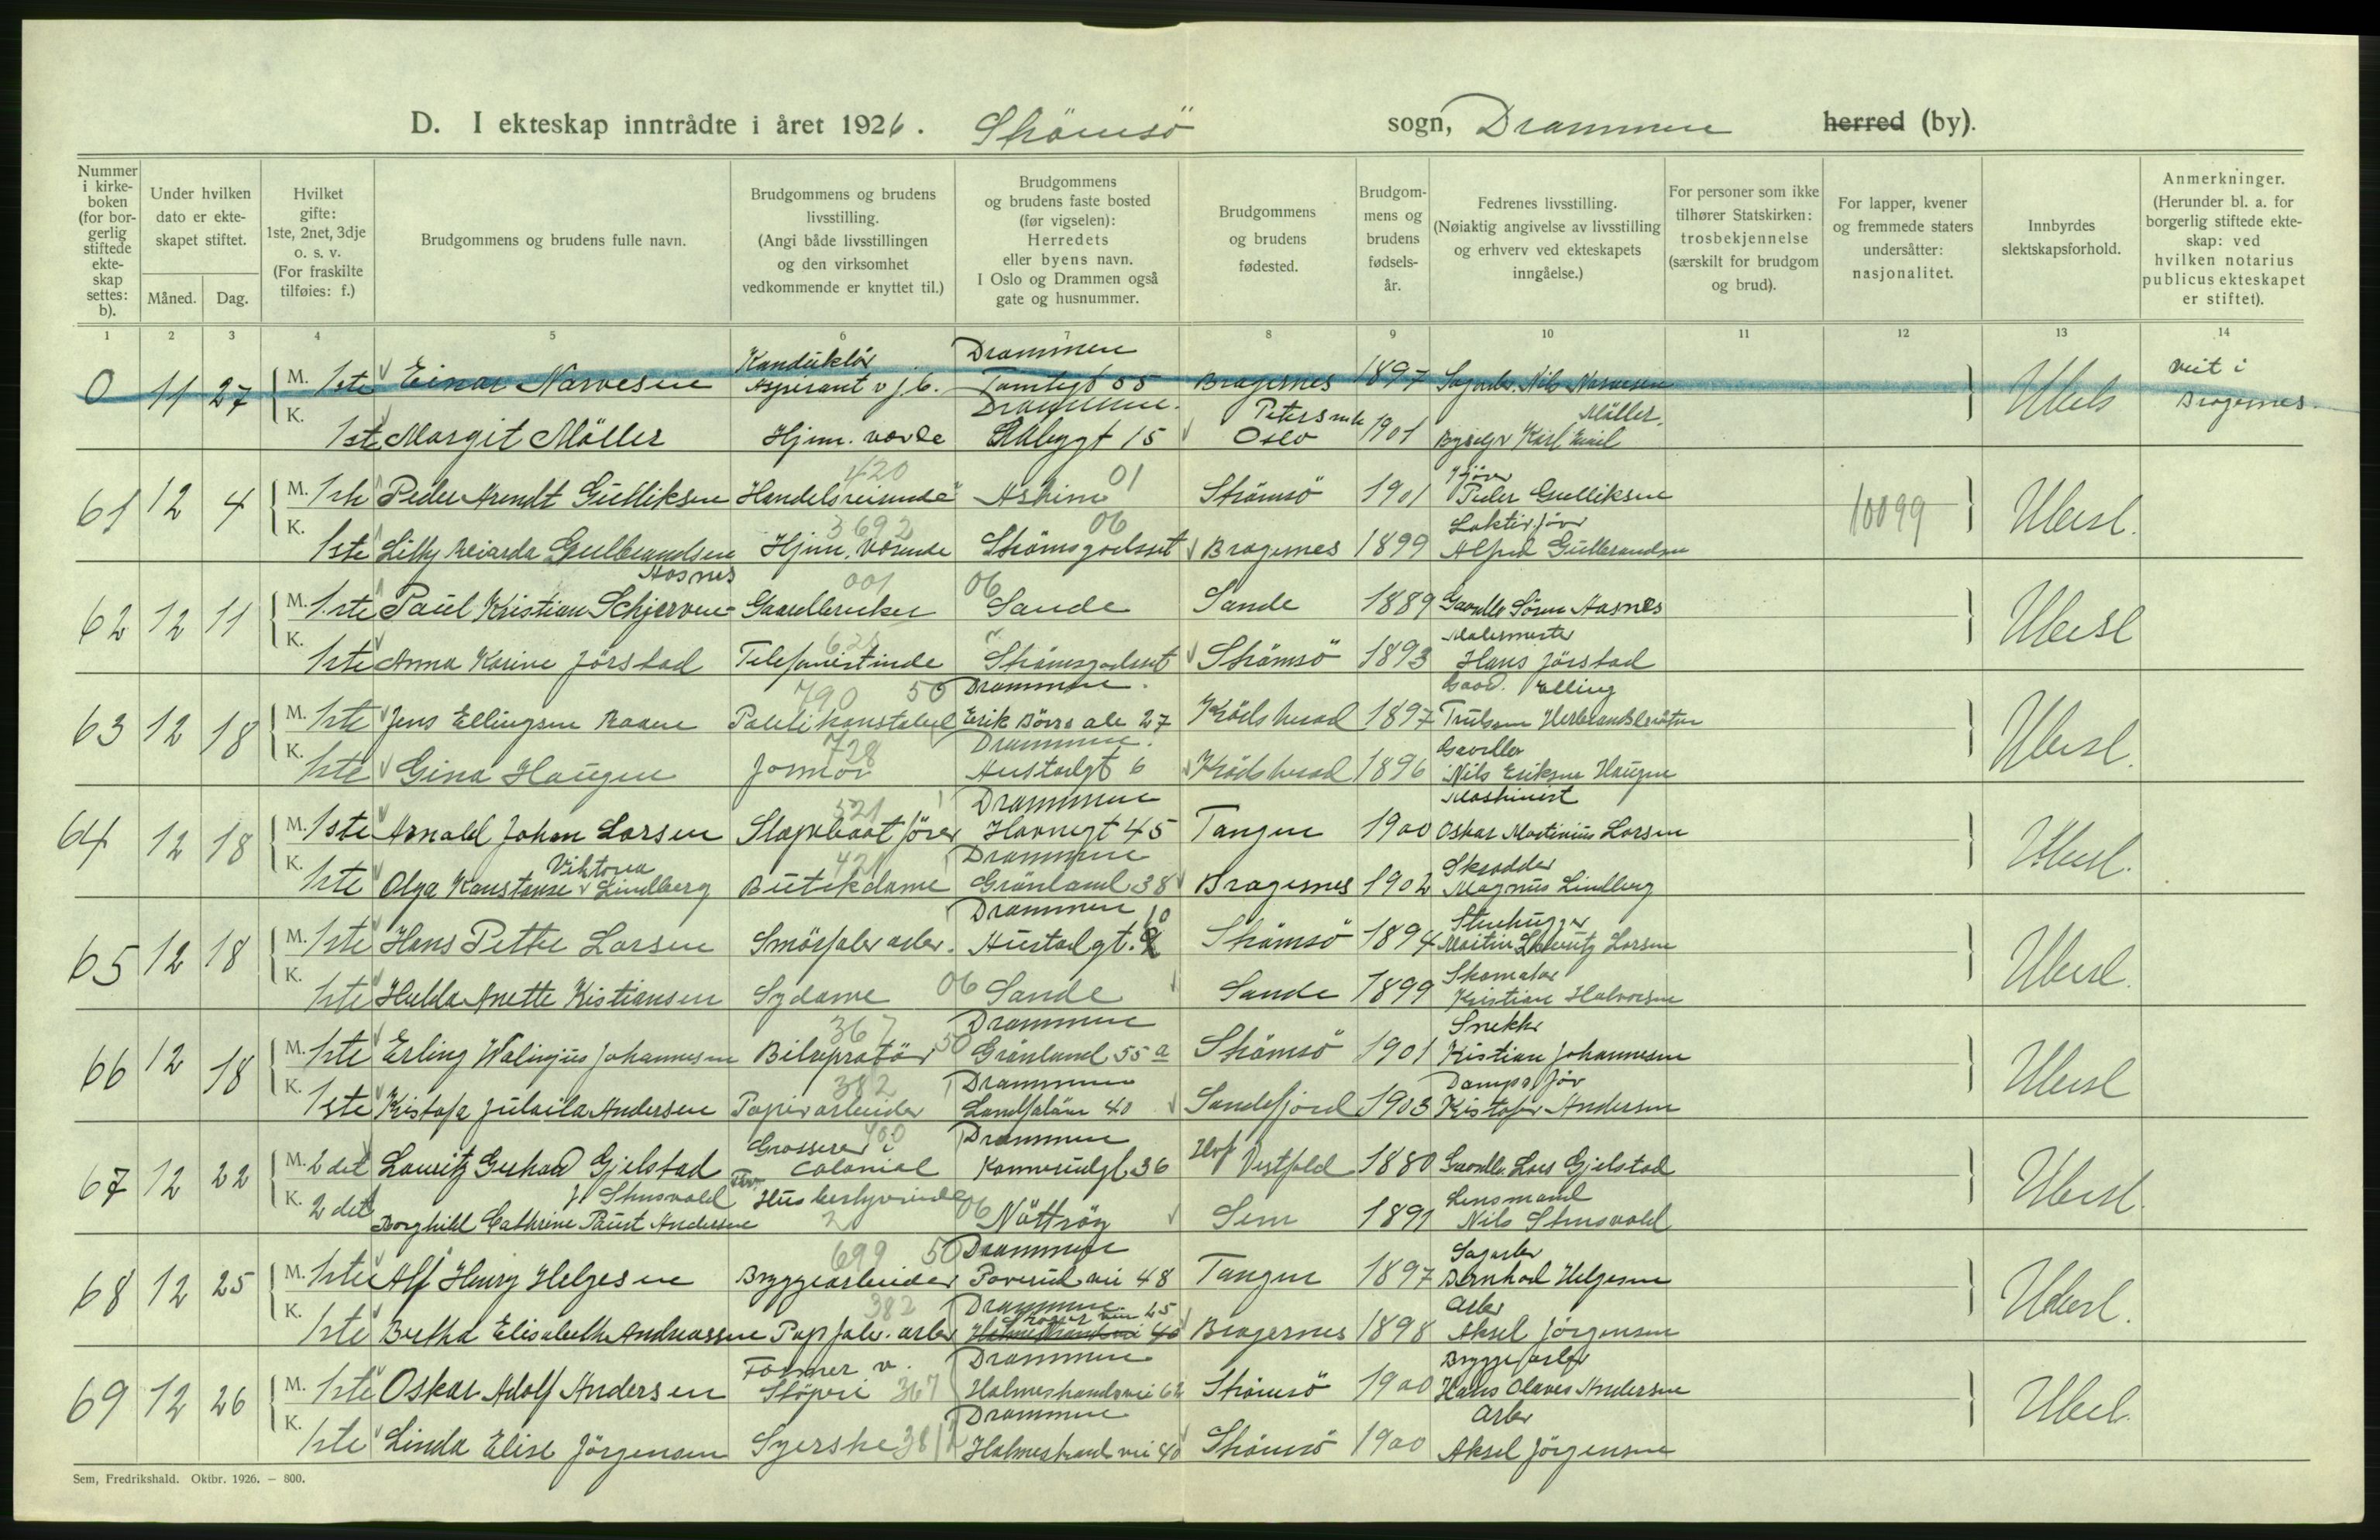 D. I ekteskap inntrådte i året 1926. Strömsö sogn, Drammen herred (by).
Nummer i kirkeboken (for borgerlig stiftede ekteskap settes: b).
Under hvilken dato er ekteskapet stiftet.
Måned. Dag.
Hvilket gifte: 1ste, 2net, 3dje o. s. v. (For fraskilte tilføies: f.)
Brudgommens og brudens fulle navn.
Brudgommens og brudens livsstilling. (Angi både livsstillingen og den virksomhet vedkommende er knyttet til.)
Brudgommens og brudens faste bosted (før vigselen): Herredets eller byens navn. I Oslo og Drammen også gate og husnummer.
Brudgommens og brudens fødested.
Brudgommens og brudens fødselsår.
Fedrenes livsstilling. (Nøiaktig angivelse av livsstilling og erhverv ved ekteskapets inngåelse.)
For personer som ikke tilhører Statskirken: trosbekjennelse (særskilt for brudgom og brud).
For lapper, kvener og fremmede staters undersåtter: nasjonalitet.
Innbyrdes slektskapsforhold.
Anmerkninger. (Herunder bl. a. for borgerlig stiftede ekteskap: ved hvilken notarius publicus ekteskapet er stiftet).
1 2 3 4 5 6 7 8 9 10 11 12 13 14
Konduktör Drammen
0 11 27 M. 1ste Einar Narvesen Aspirant v j.b. Tomtegt 55 Bragernes 1897 Sagarb. Nils Narvesen Ubesl. viet i Bragernes.
Drammen. Møller.
K. 1ste Margit Möller Hjem. værende 15 Oslo 1901 Karl Emil
420 01
61 12 4 M. 1ste Peder Arendt Gulliksen Handelsreisende Askim Strömsö 1901 Peder Gulliksen 10099 Ubesl.
3692 06
K. 1ste Lilly Gulbrandsen Hjem. værende Strömsgodset Bragernes 1899 Alfred Gulbrandsen
Aasnes 001 06
62 12 11 M. 1ste Paul Kristian Schjerven Gaardbruker Sande Sande 1889 Gaardb. Sören Aasnes Ubesl
Malermester
K. 1ste Anna Karine Jörstad Telefonistinde Strömsgodset Strömsö 1893 Hans Jörstad
790 50 Drammen. Gaardb. Elling
63 12 18 M. 1ste Jens Ellingsen Politikonstabel Erik Börs ale 27 Krödsherad 1897 Trulsen Ubesl.
728 Drammen. Gaardb.
K. 1ste Gina Haugen Jormor Austadgt 6 Krödsherad 1896 Nils Eriksen Haugen
521 Drammen Maskinist
64 12 18 M. 1ste Arnold Johan Larsen Slæpebaatförer Havnegt 45 Tangen 1900 Oskar Martinius Larsen Ubesl.
Viktoria 421 Drammen Skrædder
K. 1ste Olga Konstanse Lindberg Butikdame Grönland 38 Bragernes 1902 Magnus Lindberg
Drammen 10 Stenhugger
65 12 18 M. 1ste Hans Petter Larsen Smörfabr arb. Austadgt. Strömsö 1894 Martin Larsen Ubesl.
06 Skomaker
K. 1ste Hulda Anette Kristiansen Sydame Sande Sande 1899 Kristian Halvorsen
367 Drammen Snekker
66 12 18 M. 1ste Erling Walinjus Johannesen Bilreparatör 50 Grönland 55 a Strömsö 1901 Kristian Johannesen Ubesl
382 Drammen
K. 1ste Kristofa Julaila Andersen Papirarbeider Landfalöen 40 Sandefjord 1903 Kristofer Andersen
Grosserer i 400 Drammen
67 12 22 M. 2det Lauritz Gerhard Gjelstad Colonial Konnerudgt 36 Hof Vestfold 1880 Gaardb. Lars Gjelstad Ubesl.
f. Stensvold Husbestyrerinde 06 Lensmand
K. 2det Borghild Cathrine Paust Andersen Nötteröy Sem 1891 Nils Stensvold
699 50 Drammen Sagarb
68 12 25 M. 1ste Alf Henry Helgesen Bryggearbeider Paverud vei 48 Tangen 1897 Bernhard Helgesen Ubesl.
382 Drammen 25 Arb
K. 1ste Bertha Elisabeth Andreassen Papfabr. arb Holmestrand vei 40 Bragernes 1898 Aksel Jörgensen
Former v. Drammen Bryggearb
69 12 26 M. 1ste Oskar Adolf Andersen Stöperi 367 Holmestrandsvei 62 Strömsö 1900 Hans Olaves Andersen Ubesl.
Drammen Arb
K. 1ste Linda Elise Jörgensen Syerske 381 Holmestrand vei 40 Strömsö 1900 Aksel Jörgensen
Sem, Fredrikshald. Oktbr. 1926. — 800.